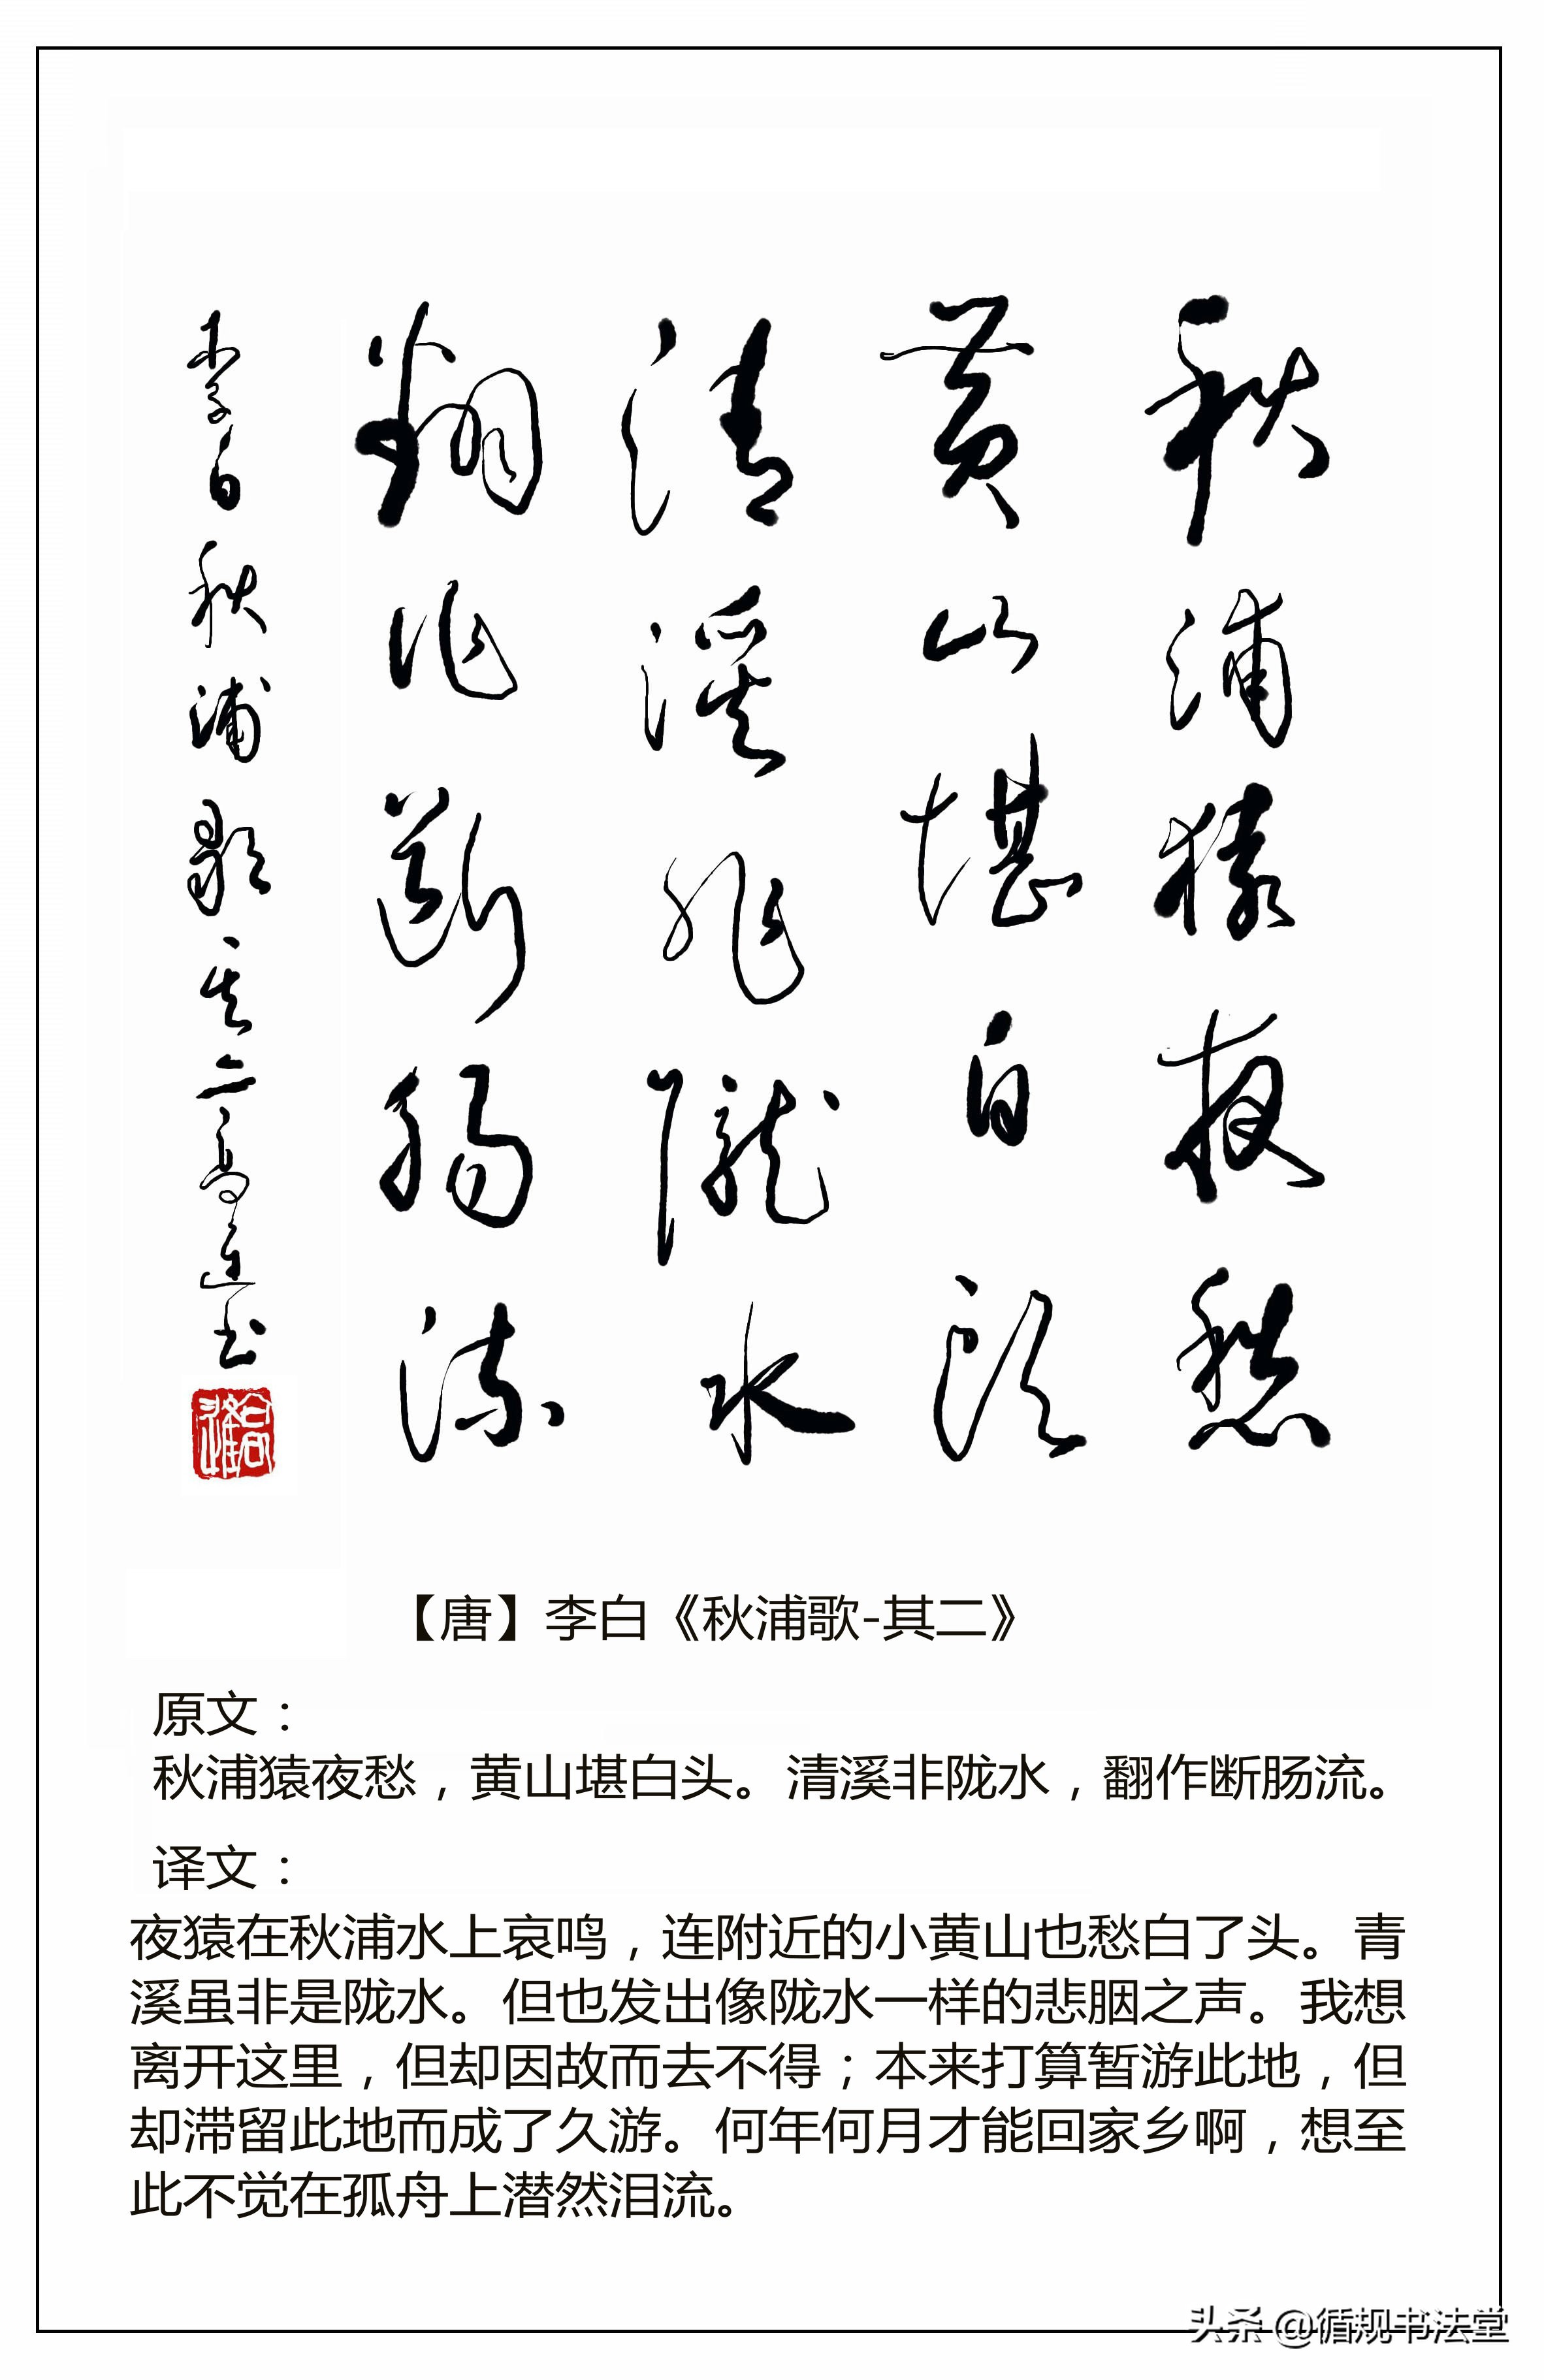 秋浦猿夜愁
黄山堪白头
清溪非陇水
翻作断肠流
李白秋浦歌其二高进书
【唐】李白《秋浦歌-其二》
原文：
秋浦猿夜愁，黄山堪白头。清溪非陇水，翻作断肠流。
译文：
夜猿在秋浦水上哀鸣，连附近的小黄山也愁白了头。青
溪虽非是陇水。但也发出像陇水一样的悲胭之声。我想
离开这里，但却因故而去不得；本来打算暂游此地，但
却滞留此地而成了久游。何年何月才能回家乡啊，想至
此不觉在孤舟上潜然泪流。
头条 @循规书法堂